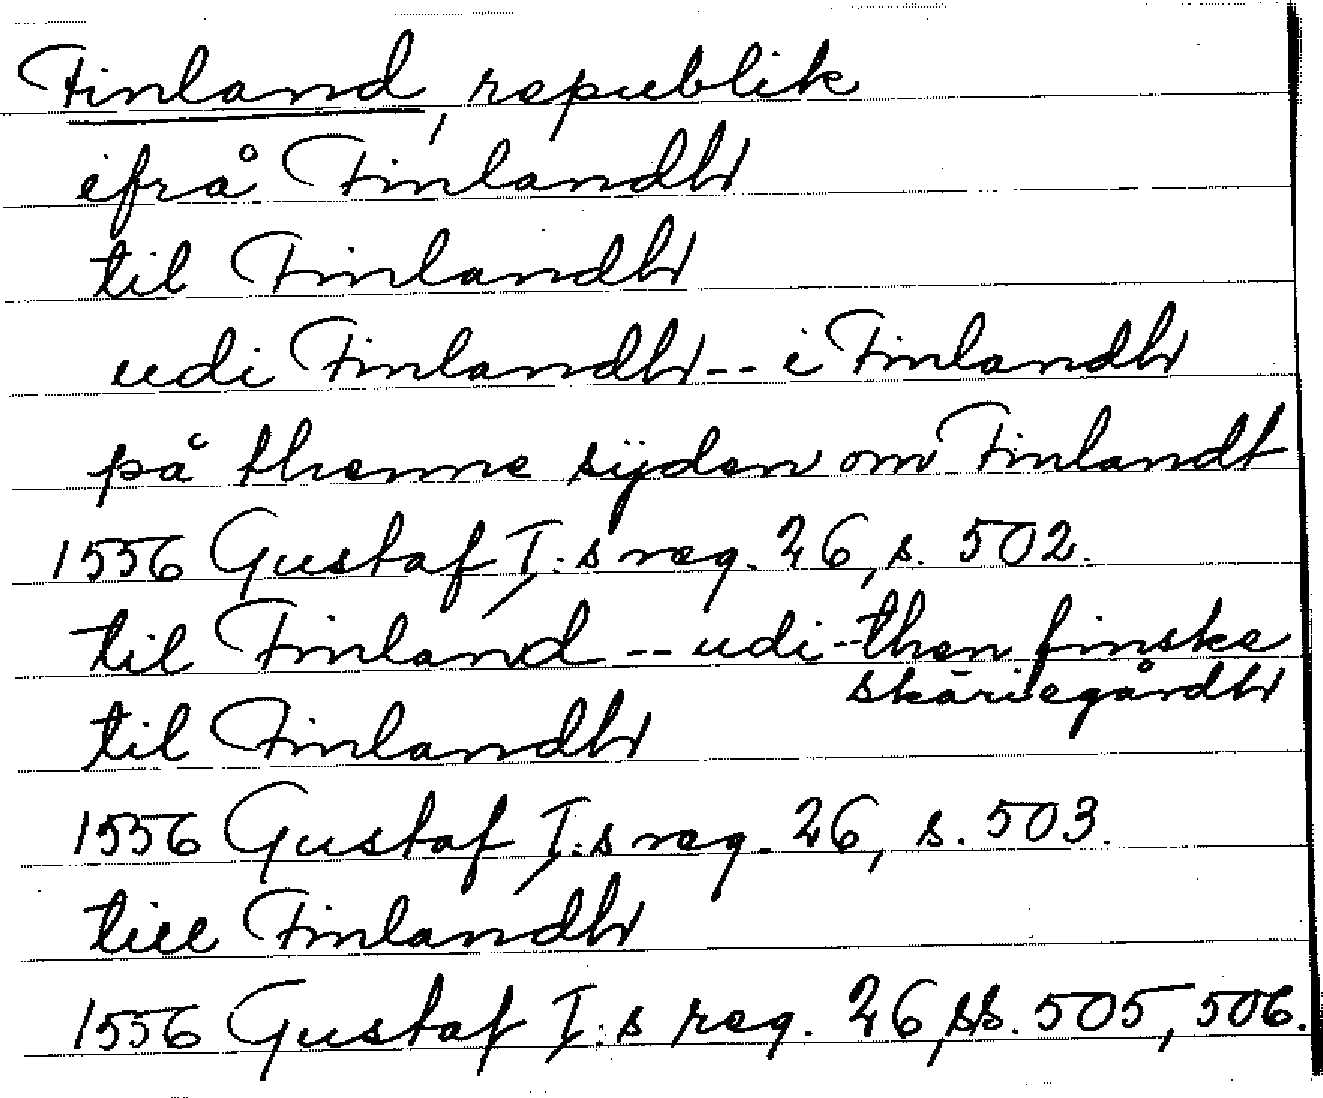 Finland, republik
ifrå Finlandh
til Finlandh
udi Finlandh -- i Finlandh
på thenne sijden om Finlandt
1556 Gustaf I:s reg. 26, s. 502.
til Finland -- udi then finske
skäriegårdh
til Finlandh
1556 Gustaf I:s reg. 26, s. 503.
till Finlandh
1556 Gustaf I:s reg. 26, ss. 505, 506.